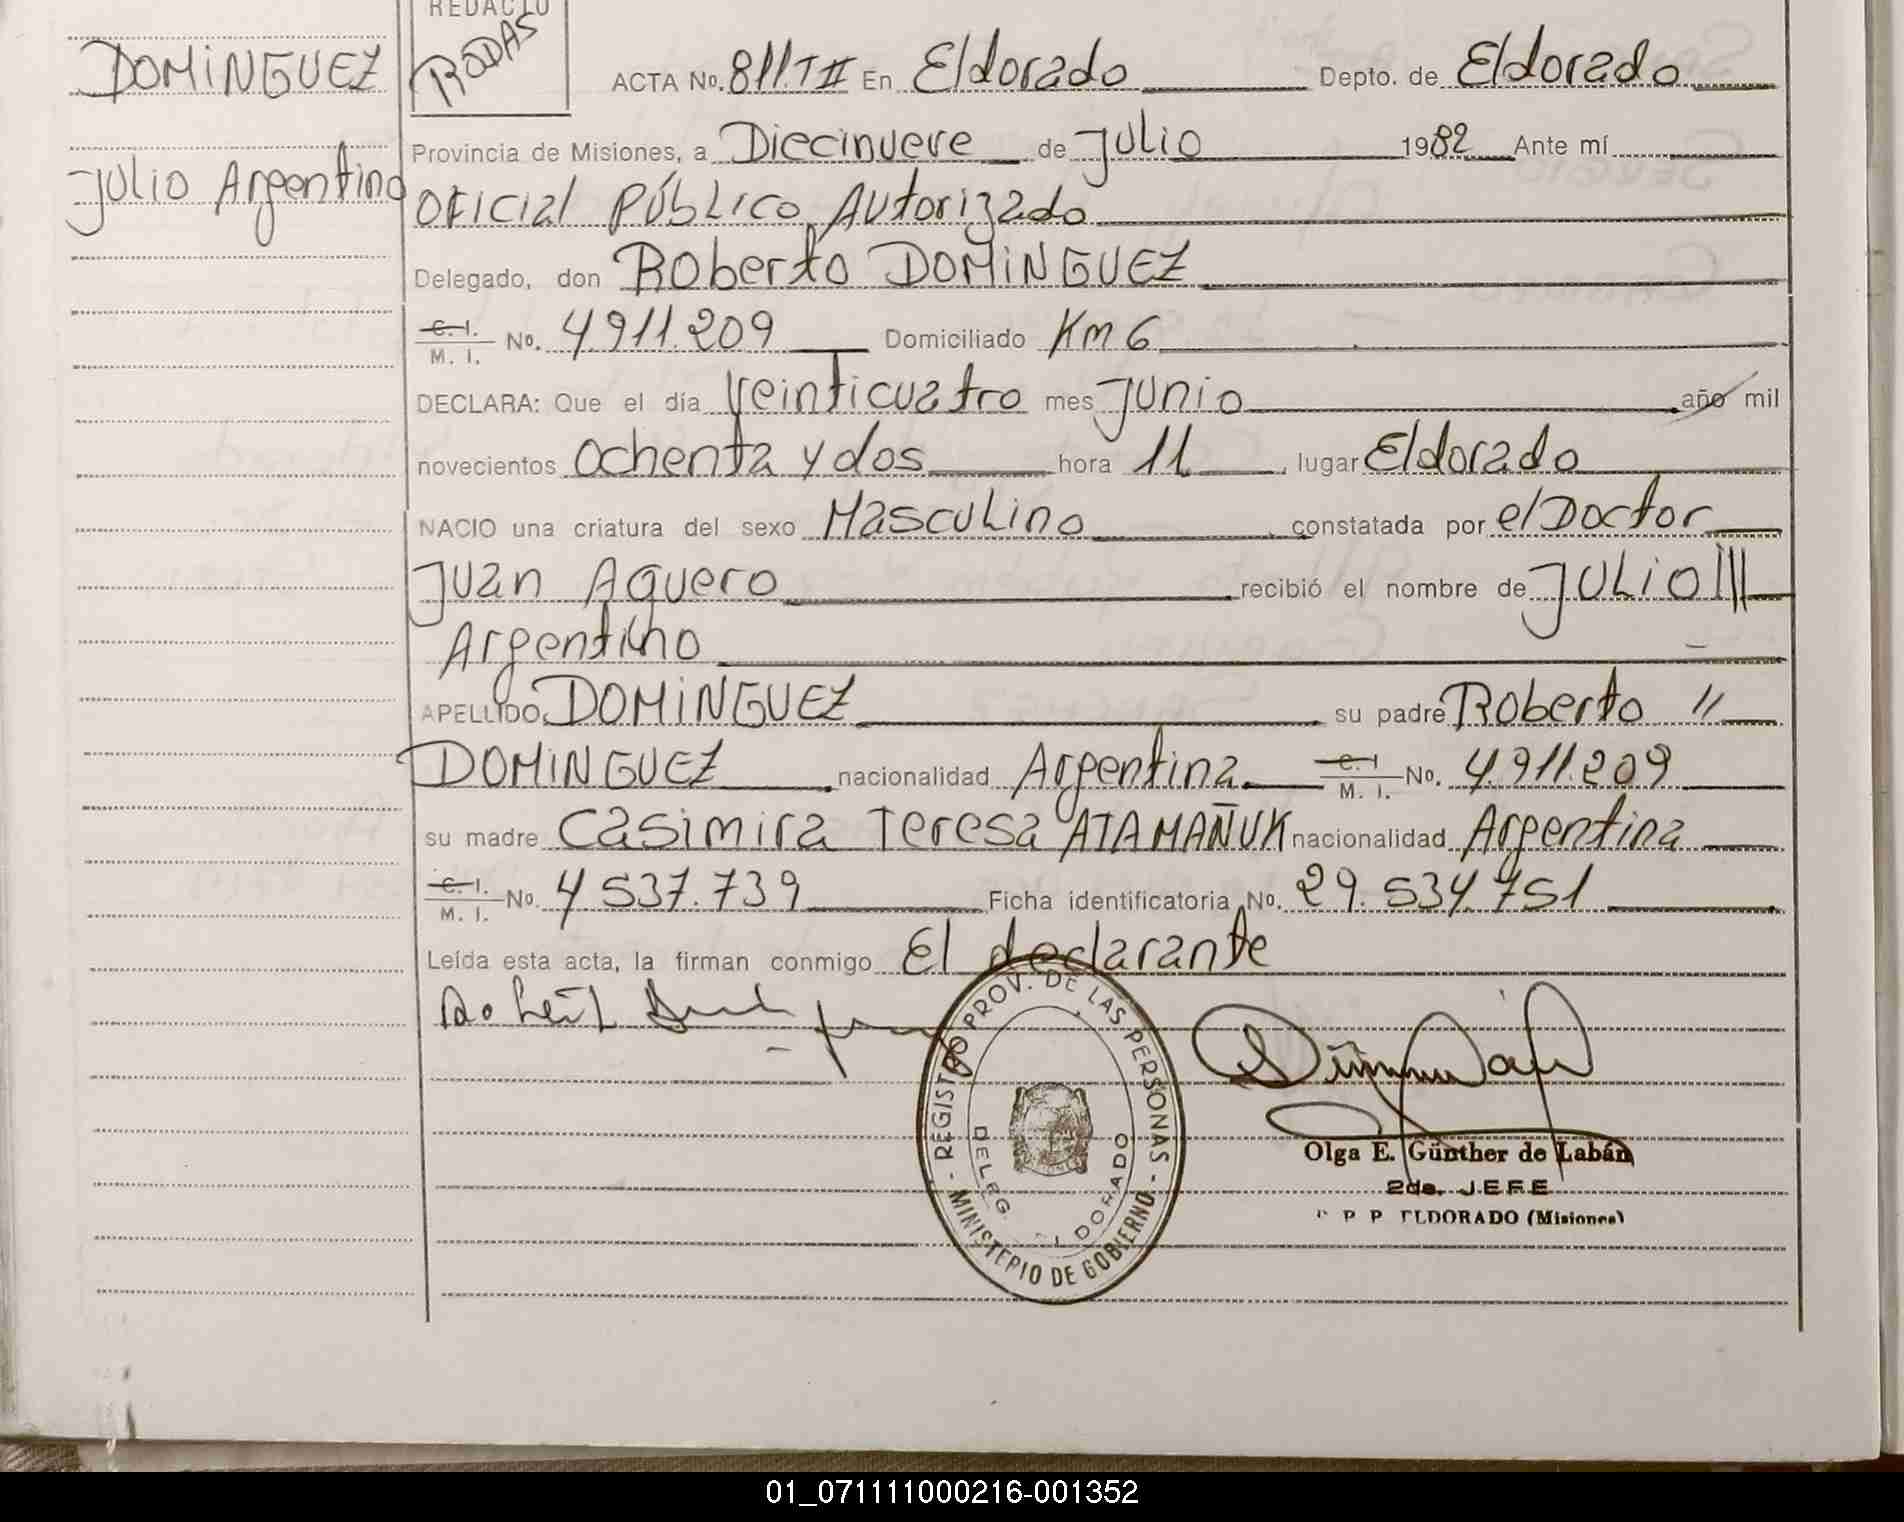 DOMINGUEZ
Julio Argentino
REDACTO
RODAS
ACTA No. 811.TII En Eldorado Depto. de Eldorado
Provincia de Misiones, a Diecinueve de Julio 1982 Ante mí
Oficial Público Autorizado
Delegado, don Roberto DOMINGUEZ
C. I. / M. I. No. 4.911.209 Domiciliado Km 6
DECLARA: Que el día Veinticuatro mes Junio año mil
novecientos Ochenta y dos hora 11 lugar Eldorado
NACIO una criatura del sexo Masculino constatada por el Doctor
Juan Aguero recibió el nombre de JULIO
Argentino
APELLIDO DOMINGUEZ su padre Roberto
DOMINGUEZ nacionalidad Argentina C. I. / M. I. No. 4.911.209
su madre Casimira Teresa ATAMAÑUK nacionalidad Argentina
C. I. / M. I. No. 4.537.739 Ficha identificatoria No. 29.534.751
Leída esta acta, la firman conmigo El declarante
- REGISTRO PROV. DE LAS PERSONAS -
MINISTERIO DE GOBIERNO
DELEG. ELDORADO
Olga E. Günther de Labán
2da. JEFE
R P P ELDORADO (Misiones)
01_071111000216-001352